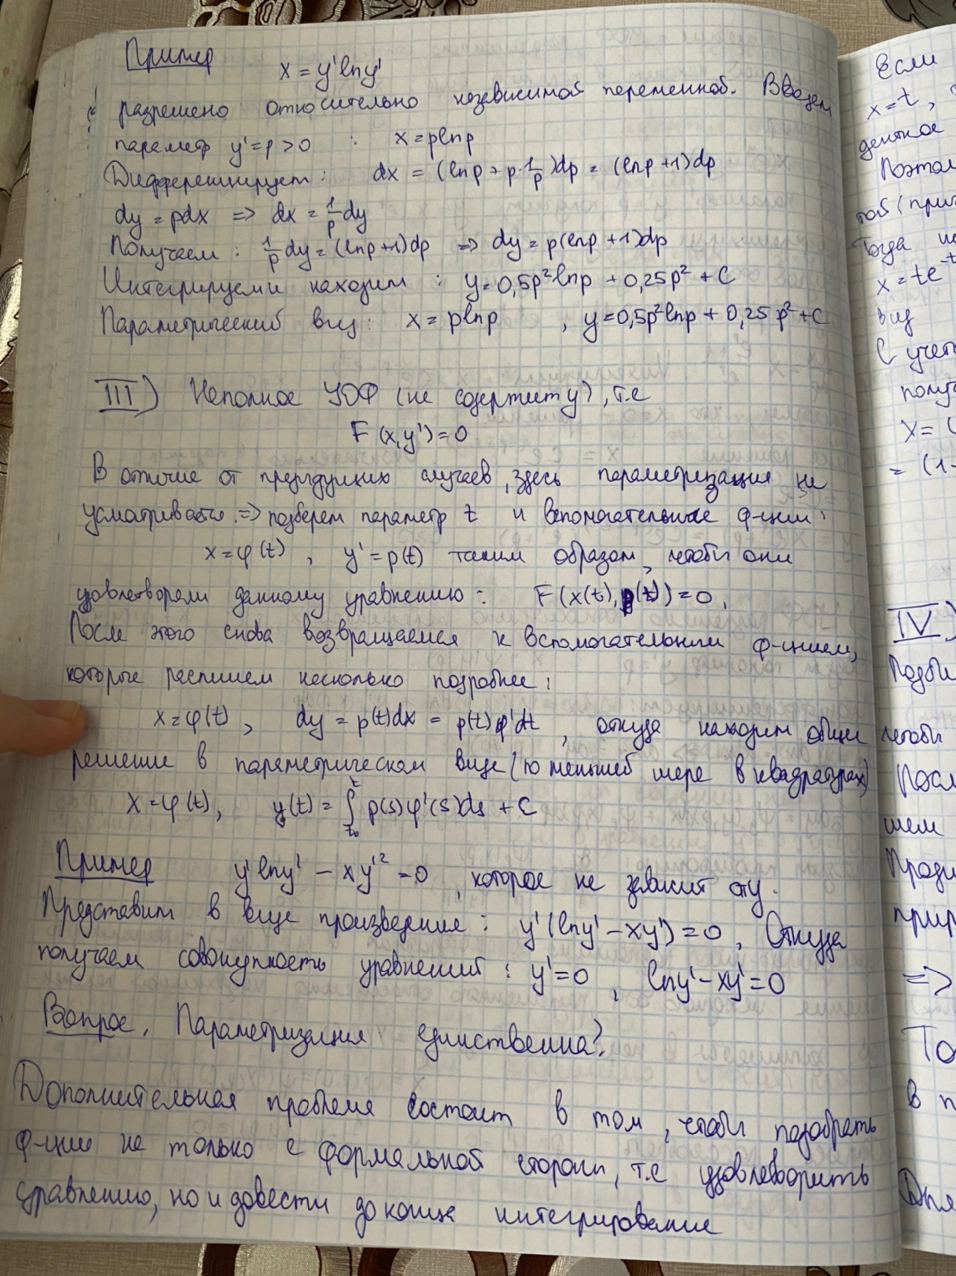 Пример
x = y'lny'
разрешено относительно независимой переменной. Введем
параметр y'=p>0 : x=plnp
Дифференцирует: dx = (lnp + p·1/p)dp = (lnp+1)dp
dy = pdx => dx = 1/p dy
Получаем: 1/p dy = (lnp+1)dp => dy = p(lnp+1)dp
Интегрируем и находим: y=0,5p²lnp + 0,25p² + C
Параметрический вид: x = plnp , y=0,5p²lnp + 0,25p²+C
III) Неполное УОФ (не содержит y), т.е
F(x,y')=0
В отличие от предыдущих случаев, здесь параметризация не
усматривается => подберем параметр t и вспомогательные ф-ции:
x=φ(t) , y'=p(t) таким образом, чтобы они
удовлетворяли данному уравнению: F(x(t), p(t))=0,
После этого снова возвращаемся к вспомогательным ф-циям,
которые распишем несколько подробнее:
x=φ(t), dy = p(t)dx = p(t)φ'dt , откуда находим общее
решение в параметрическом виде (по меньшей мере в квадратурах)
x=φ(t), y(t) = ∫ₜ₀ᵗ p(s)φ'(s)ds + C
Пример y'lny' - xy'² = 0 , которое не зависит от y.
Представим в виде произведения: y'(lny'-xy')=0, Откуда
получаем совокупность уравнений: y'=0 , lny'-xy'=0
Вопрос. Параметризация единственна?
Дополнительная проблема состоит в том, чтобы подобрать
ф-ции не только с формальной стороны, т.е удовлетворить
уравнению, но и довести до конца интегрирование
Если
x=t,
Поэтом
Тогда
x=te⁻ᵗ
вид
С учет
получ
x=(
=(1-
IV)
Подби
чтобы
Посл
шем
=>
То
в п
Для